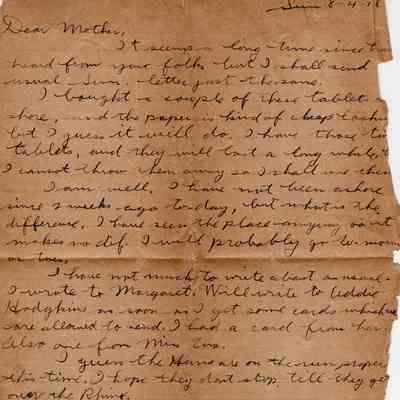 Sun 8-4-18
Dear Mother,
It seems a long time since I've
heard from your folks but I shall send
usual Sun. letter just the same.
I bought a couple of these tablets a
shore, and the paper is kind of cheap looking
but I guess it will do. I have those two
tablets, and they will last a long while,
I cannot throw them away so I shall use them
I am well, I have not been ashore
since 2 weeks ago to-day, but what is the
difference, I have seen the place anyway so it
makes no dif. I will probably go to-morrow
or tues.
I have not much to write about as usual.
I wrote to Margaret. Will write to Addie
Hodgkins as soon as I get some cards which we
are allowed to send. I had a card from her.
Also one from Miss
I guess the Huns are on the run proper
this time. I hope they dont stop till they get
over the Rhine.